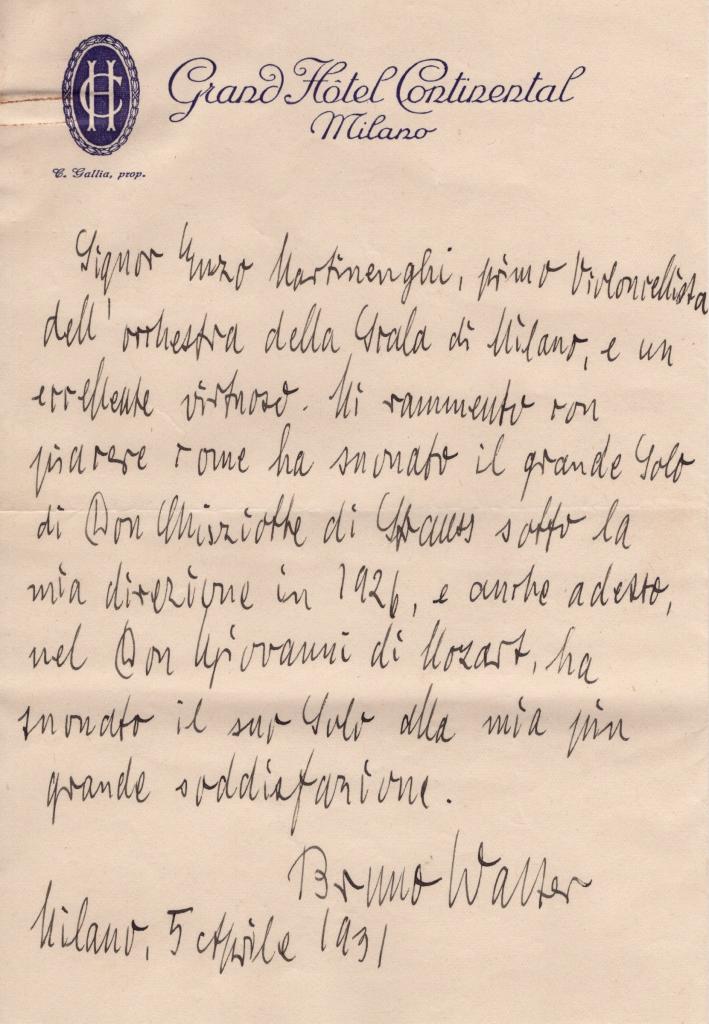 HC
Grand Hôtel Continental
Milano
C. Gallia, prop.
Signor Enzo Martinenghi, primo Violoncellista
dell' orchestra della Scala di Milano, e un
eccellente virtuoso. Mi rammento con
piacere come ha suonato il grande Solo
di Don Chisziotte di Strauss sotto la
mia direzione in 1926, e anche adesso,
nel Don Giovanni di Mozart, ha
suonato il suo Solo alla mia più
grande soddisfazione.
Bruno Walter
Milano, 5 Aprile 1931